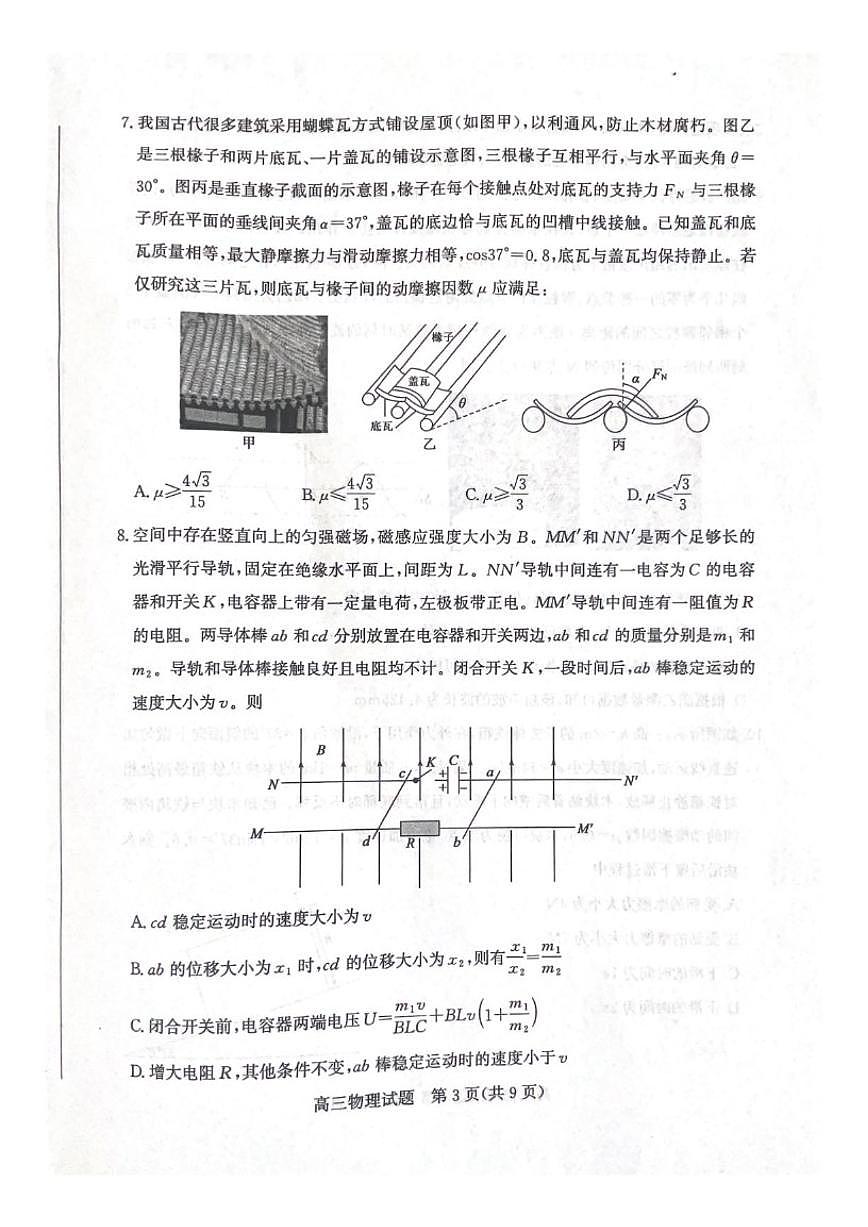 7. 我国古代很多建筑采用蝴蝶瓦方式铺设屋顶(如图甲),以利通风,防止木材腐朽。图乙
是三根椽子和两片底瓦、一片盖瓦的铺设示意图,三根椽子互相平行,与水平面夹角θ=
30°。图丙是垂直椽子截面的示意图,椽子在每个接触点处对底瓦的支持力 FN 与三根椽
子所在平面的垂线间夹角α=37°,盖瓦的底边恰与底瓦的凹槽中线接触。已知盖瓦和底
瓦质量相等,最大静摩擦力与滑动摩擦力相等,cos37°=0.8,底瓦与盖瓦均保持静止。若
仅研究这三片瓦,则底瓦与椽子间的动摩擦因数μ应满足:
椽子
盖瓦
θ
底瓦
α
FN
甲
乙
丙
A. μ≥4√3/15
B. μ≤4√3/15
C. μ≥√3/3
D. μ≤√3/3
8. 空间中存在竖直向上的匀强磁场,磁感应强度大小为 B。MM′和 NN′是两个足够长的
光滑平行导轨,固定在绝缘水平面上,间距为 L。NN′导轨中间连有一电容为 C 的电容
器和开关 K,电容器上带有一定量电荷,左极板带正电。MM′导轨中间连有一阻值为 R
的电阻。两导体棒 ab 和 cd 分别放置在电容器和开关两边,ab 和 cd 的质量分别是 m₁ 和
m₂。导轨和导体棒接触良好且电阻均不计。闭合开关 K,一段时间后,ab 棒稳定运动的
速度大小为 v。则
B
K C
c
a
N
N′
+ −
M
M′
d
R
b
A. cd 稳定运动时的速度大小为 v
B. ab 的位移大小为 x₁ 时,cd 的位移大小为 x₂,则有 x₁/x₂=m₁/m₂
C. 闭合开关前,电容器两端电压 U=m₁v/BLC+BLv(1+m₁/m₂)
D. 增大电阻 R,其他条件不变,ab 棒稳定运动时的速度小于 v
高三物理试题 第 3 页(共 9 页)